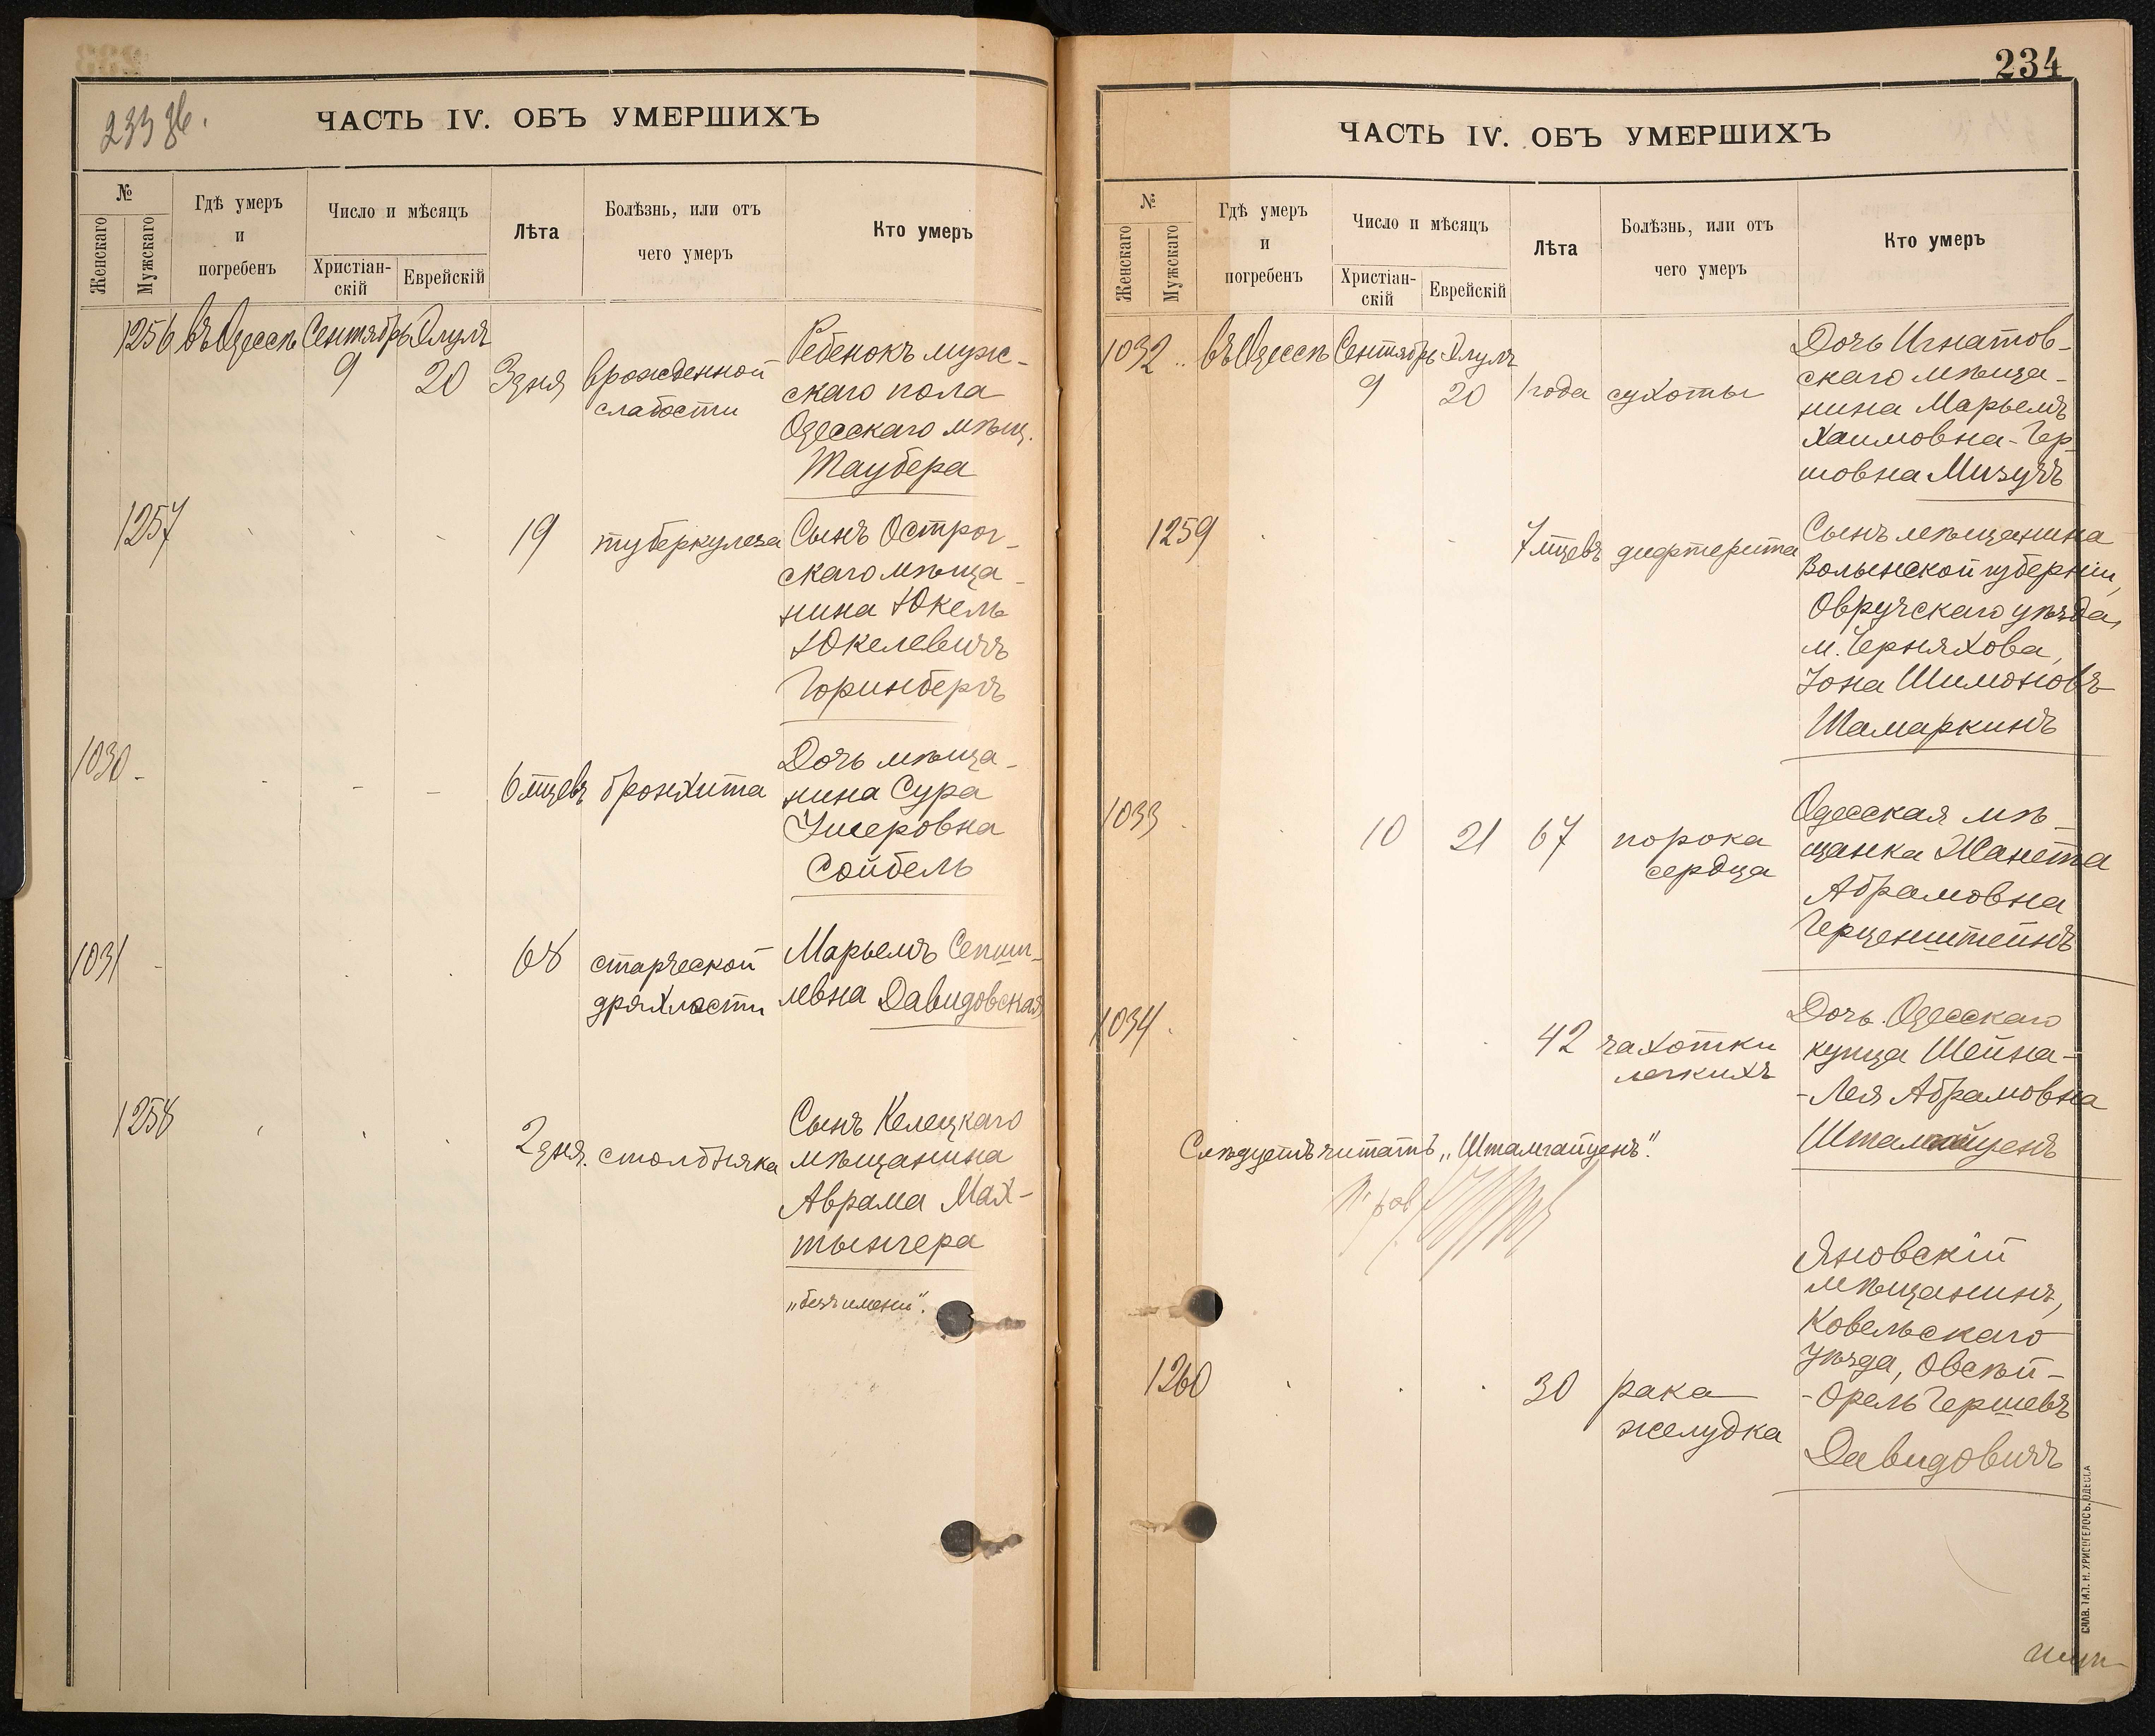 233 об.
ЧАСТЬ IV. ОБЪ УМЕРШИХЪ
№
Женскаго
Мужскаго
Гдѣ умеръ
и
погребенъ
Число и мѣсяцъ
Христіан-
скій
Еврейскій
Лѣта
Болѣзнь, или отъ
чего умеръ
Кто умеръ
1256 въ Одессѣ Сентябрь Элулъ
9 20 3 дня врожденной
слабости
Ребенокъ муж-
скаго пола
Одесскаго мѣщ.
Таубера
1257 19 туберкулеза
Сынъ Острог-
скаго мѣща-
нина Юкель
Юкелевичъ
Горинбергъ
1030 6 мцевъ бронхита
Дочь мѣща-
нина Сура
Ушеровна
Сойбель
1031 68 старческой
дряхлости
Марьемъ
левна Давидовская
1258 2 дня. столбняка
Сынъ Келецкаго
мѣщанина
Аврама Мах-
тынгера
„безъ имени".
234
ЧАСТЬ IV. ОБЪ УМЕРШИХЪ
№
Женскаго
Мужскаго
Гдѣ умеръ
и
погребенъ
Число и мѣсяцъ
Христіан-
скій
Еврейскій
Лѣта
Болѣзнь, или отъ
чего умеръ
Кто умеръ
1032 въ Одессѣ Сентябрь Элулъ
9 20 1 года сухоты
Дочь Игнатов-
скаго мѣща-
нина Марьемъ
Хаимовна-Гер-
шовна Мизучъ
1259 7 мцевъ дифтерита
Сынъ мѣщанина
Волынской губерніи,
Овручскаго уѣзда,
м. Черняхова,
Іона Шимоновъ
Шамаркинъ
1033 10 21 67 порока
сердца
Одесская мѣ-
щанка Жанета
Абрамовна
Герценштейнъ
1034 42 чахотки
легкихъ
Дочь Одесскаго
купца Шейна-
-Лея Абрамовна
Шталгайценъ
Слѣдуетъ читать „Шталгайценъ".
1260 30 рака
желудка
Яновскій
мѣщанинъ,
Ковельскаго
уѣзда, Овсѣй-
-Орель Гершевъ
Давидовичъ
СЛАВ. ТИП. Н. ХРИСОГЕЛОСЪ, ОДЕССА